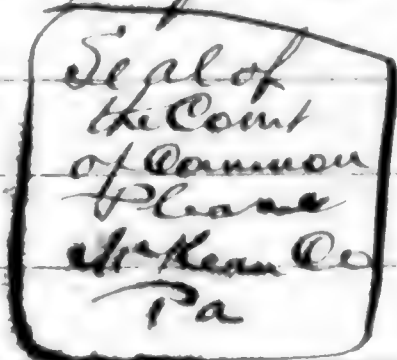 Seal of
the Court
of Common
Pleas
McKean Co
Pa